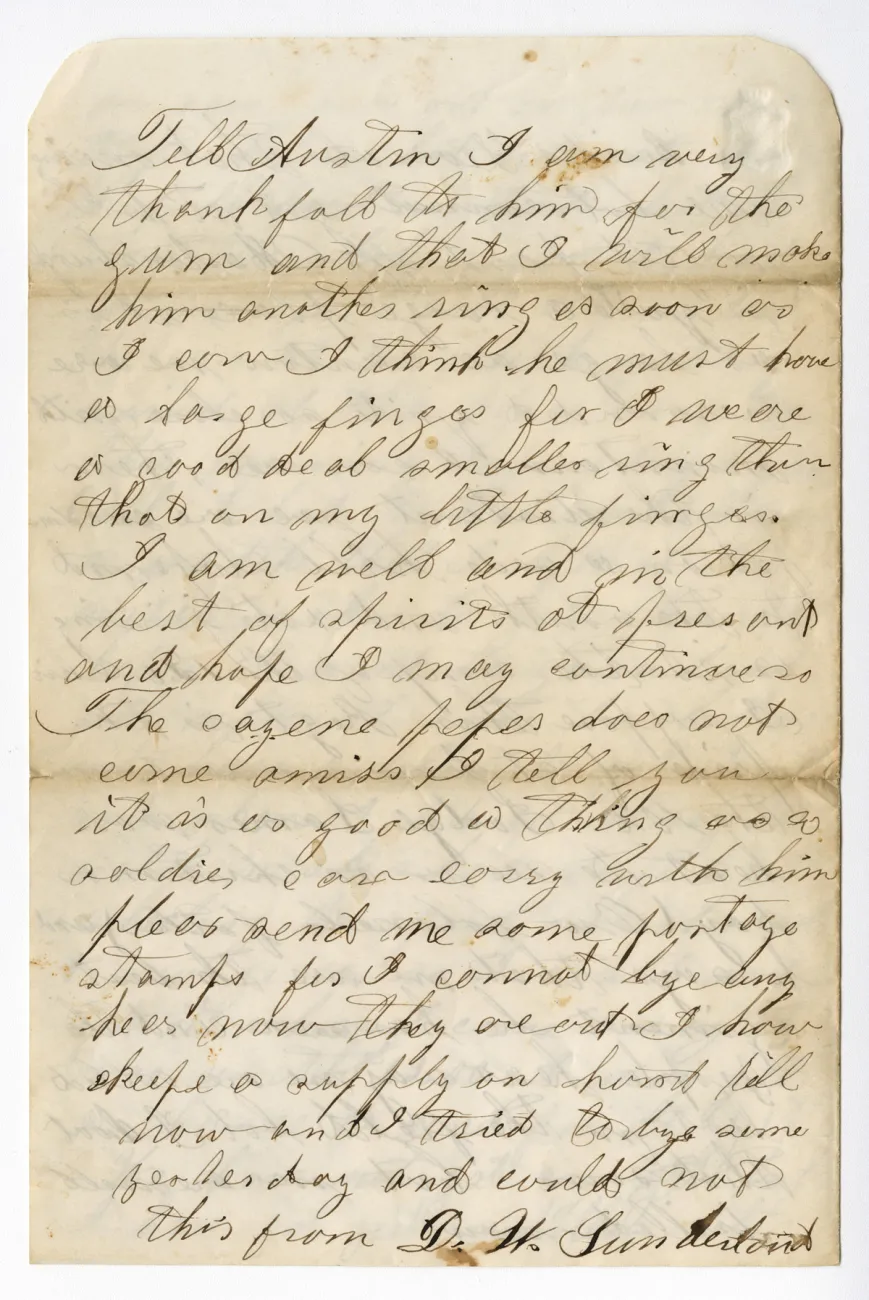 Tell Austin I am very
thank full to him for the
gum and that I will make
him another ring as soon as
I can I think he must have
a large finger for I weare
a good deal smaller ring than
that on my little finger.
I am well and in the
best of spirits at present
and hope I may continue so
The cayene peper does not
come amiss I tell you
it is as good a thing as a
soldier can carry with him
pleas send me some portage
stamps for I connot bye any
heer now they are out I have
keepe a supply on hand till
now and I tried to bye some
yesterday and could not
this from D. W. Sunderland